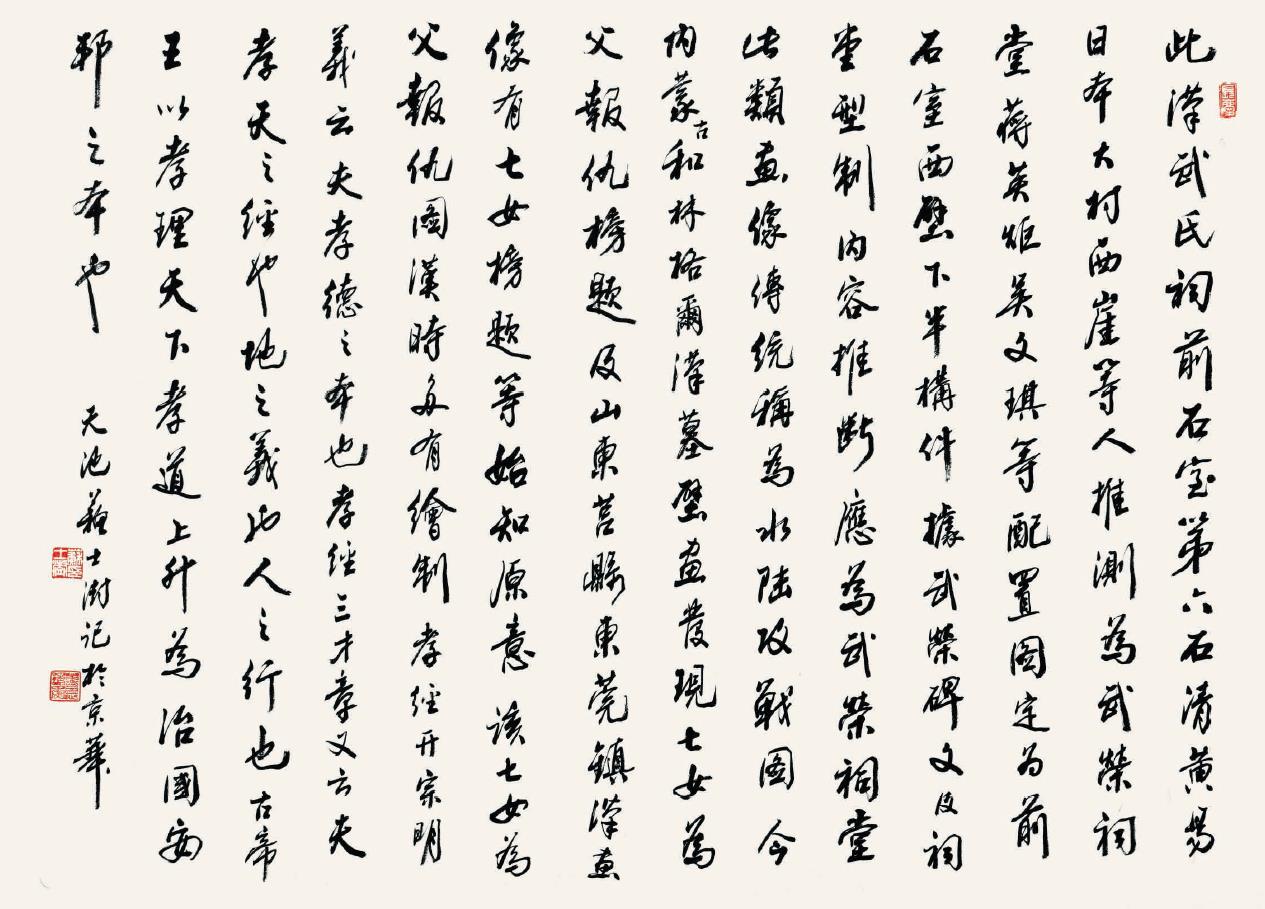 此漢武氏祠前石室第六石清黃易
日本大村西崖等人推測為武榮祠
堂蔣英炬吳文琪等配置圖定為前
石室西壁下半構件據武榮碑文及祠
堂型制內容推斷應為武榮祠堂
此類畫像傳統稱為水陸攻戰圖今
內蒙古和林格爾漢墓壁畫發現七女為
父報仇榜題及山東莒縣東莞鎮漢畫
像有七女榜題等始知原意該七女為
父報仇圖漢時多有繪制孝經開宗明
義云夫孝德之本也孝經三才章又云夫
孝天之經也地之義也人之行也古帝
王以孝理天下孝道上升為治國安
邦之本也
天池蘇士澍記於京華